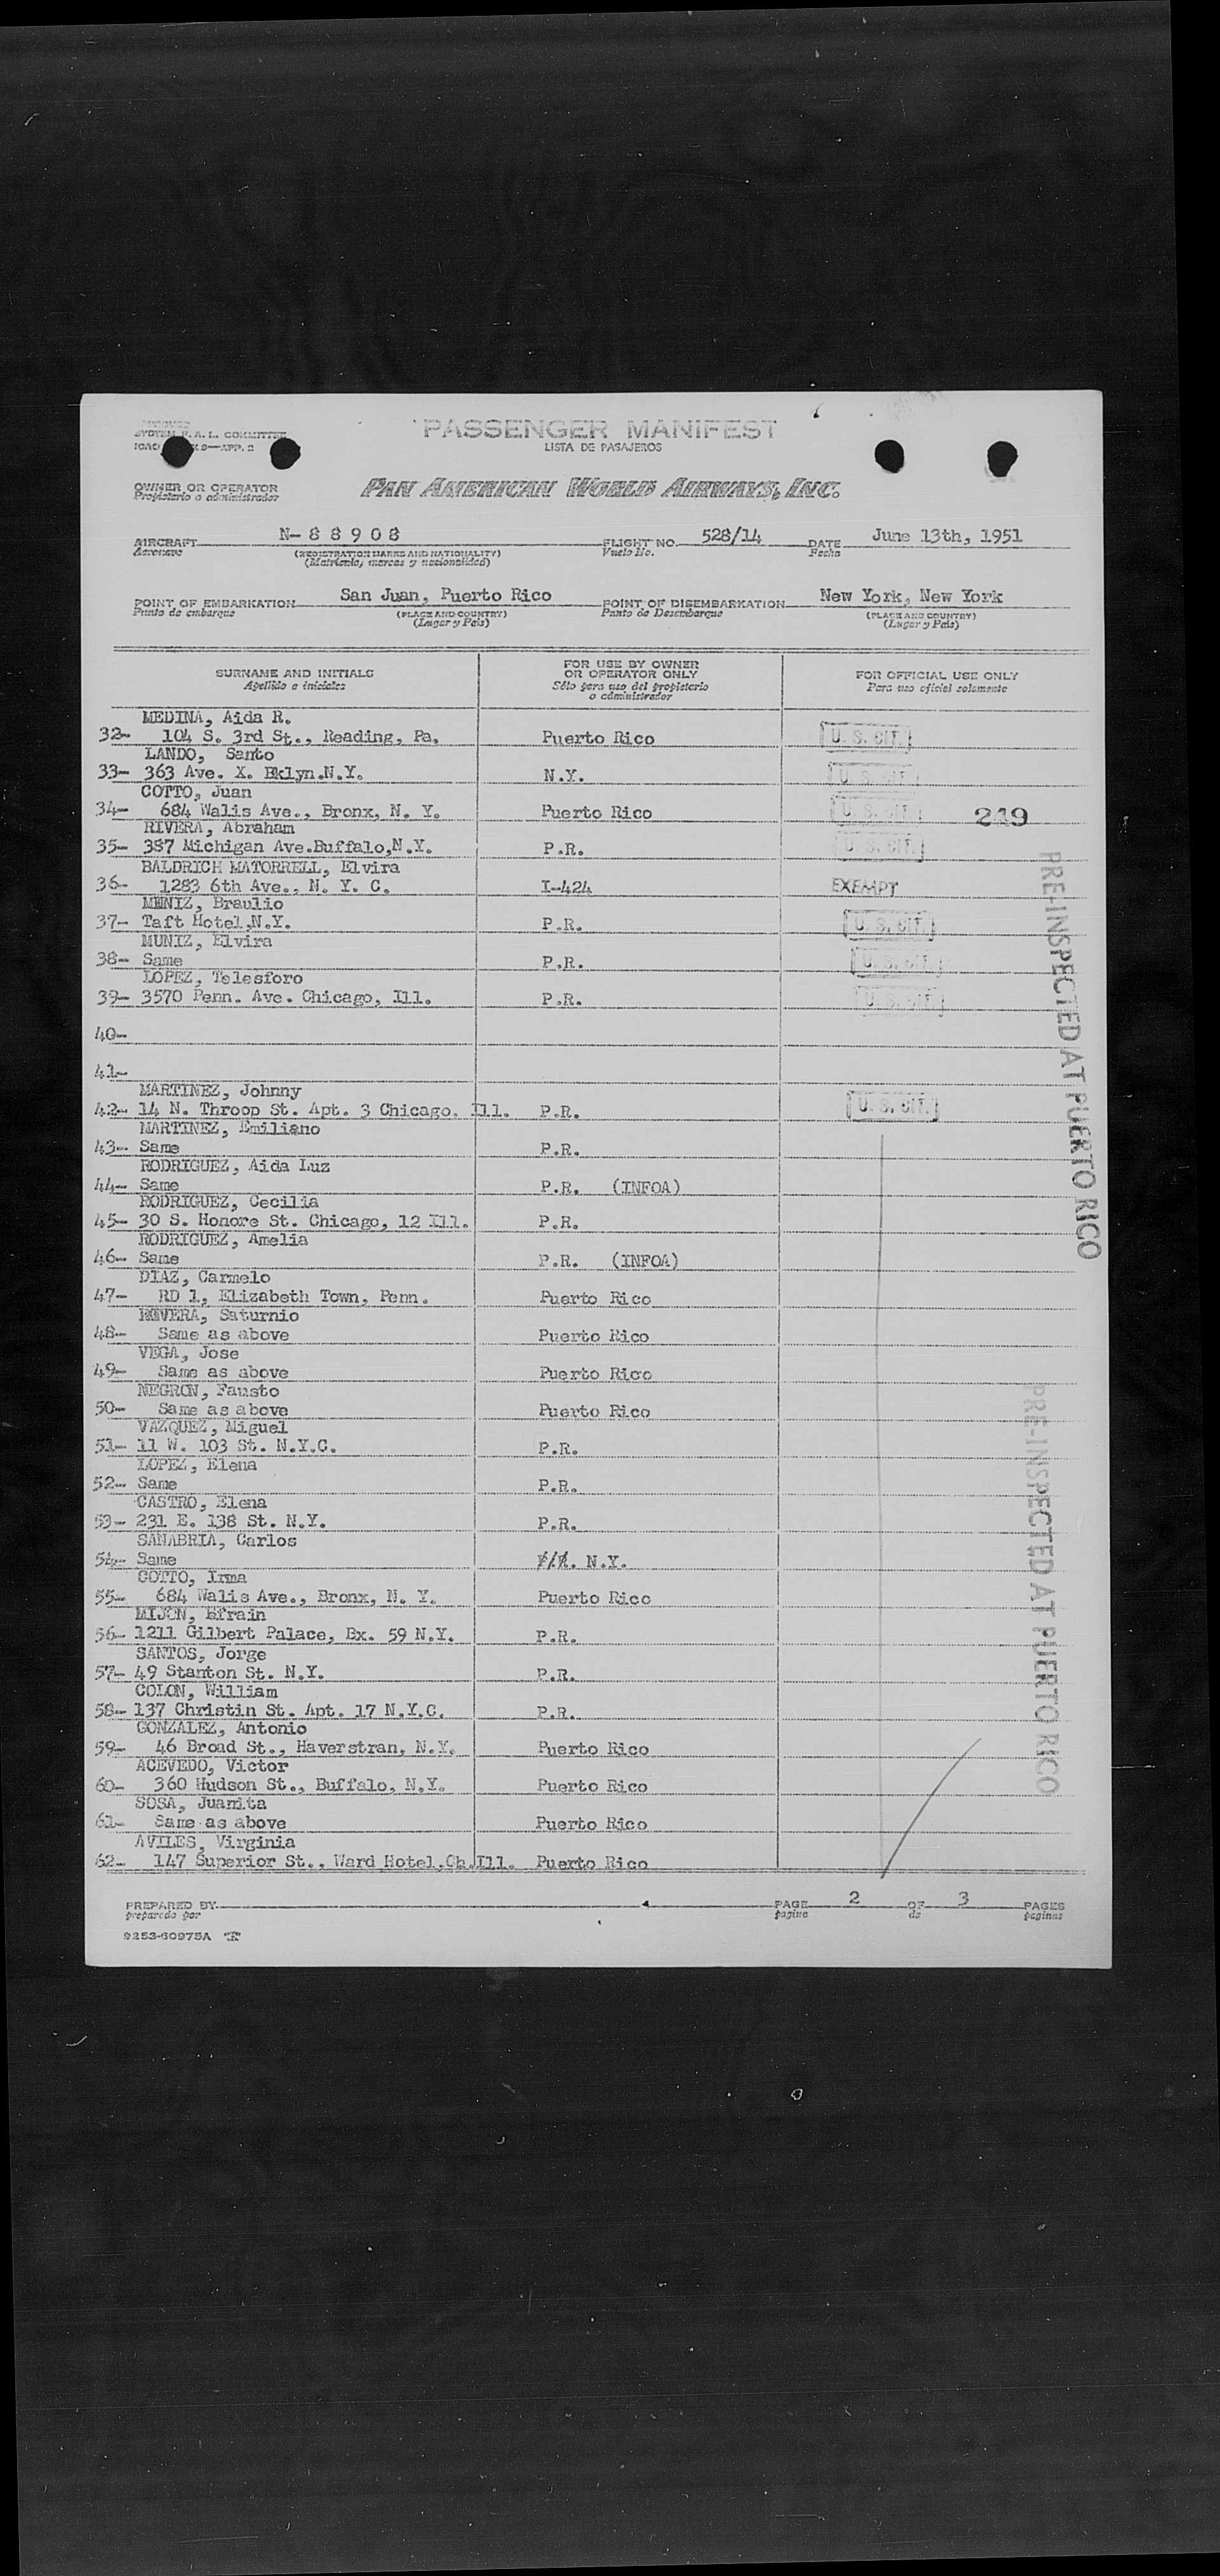 SYSTEM P.A.L. COMMITTEE
PASSENGER MANIFEST
LISTA DE PASAJEROS
OWNER OR OPERATOR
Propietario o administrador
PAN AMERICAN WORLD AIRWAYS, INC.
AIRCRAFT N-88908 FLIGHT NO. 528/14 DATE June 13th, 1951
Aeronave (REGISTRATION MARKS AND NATIONALITY) Vuelo No. Fecha
(Matrícula, marcas y nacionalidad)
POINT OF EMBARKATION San Juan, Puerto Rico POINT OF DISEMBARKATION New York, New York
Punto de embarque (PLACE AND COUNTRY) Punto de Desembarque (PLACE AND COUNTRY)
(Lugar y País) (Lugar y País)
SURNAME AND INITIALS FOR USE BY OWNER OR OPERATOR ONLY FOR OFFICIAL USE ONLY
Apellido e iniciales Sólo para uso del propietario o administrador Para uso oficial solamente
MEDINA, Aida R.
32- 104 S. 3rd St., Reading, Pa. Puerto Rico U. S. CIT.
LANDO, Santo
33- 363 Ave. X. Bklyn.N.Y. N.Y. U. S. CIT.
COTTO, Juan
34- 684 Walis Ave., Bronx, N. Y. Puerto Rico U. S. CIT. 249
RIVERA, Abraham
35- 387 Michigan Ave.Buffalo,N.Y. P.R. U. S. CIT.
BALDRICH MATORRELL, Elvira
36- 1283 6th Ave., N. Y. C. I-424 EXEMPT
MENIZ, Braulio
37- Taft Hotel,N.Y. P.R. U. S. CIT.
MUNIZ, Elvira
38- Same P.R. U. S. CIT.
LOPEZ, Telesforo
39- 3570 Penn. Ave. Chicago, Ill. P.R. U. S. CIT.
40-
41-
MARTINEZ, Johnny
42- 14 N. Throop St. Apt. 3 Chicago. Ill. P.R. U. S. CIT.
MARTINEZ, Emiliano
43- Same P.R.
RODRIGUEZ, Aida Luz
44- Same P.R. (INFOA)
RODRIGUEZ, Cecilia
45- 30 S. Honore St. Chicago, 12 Ill. P.R.
RODRIGUEZ, Amelia
46- Same P.R. (INFOA)
DIAZ, Carmelo
47- RD 1, Elizabeth Town, Penn. Puerto Rico
RIVERA, Saturnio
48- Same as above Puerto Rico
VEGA, Jose
49- Same as above Puerto Rico
NEGRON, Fausto
50- Same as above Puerto Rico
VAZQUEZ, Miguel
51- 11 W. 103 St. N.Y.C. P.R.
LOPEZ, Elena
52- Same P.R.
CASTRO, Elena
53- 231 E. 138 St. N.Y. P.R.
SANABRIA, Carlos
54- Same N.Y.
COTTO, Irma
55- 684 Walis Ave., Bronx, N. Y. Puerto Rico
MIJON, Efrain
56- 1211 Gilbert Palace, Bx. 59 N.Y. P.R.
SANTOS, Jorge
57- 49 Stanton St. N.Y. P.R.
COLON, William
58- 137 Christin St. Apt. 17 N.Y.C. P.R.
GONZALEZ, Antonio
59- 46 Broad St., Haverstran, N.Y. Puerto Rico
ACEVEDO, Victor
60- 360 Hudson St., Buffalo, N.Y. Puerto Rico
SOSA, Juanita
61- Same as above Puerto Rico
AVILES, Virginia
62- 147 Superior St., Ward Hotel,Ch.Ill. Puerto Rico
PRE-INSPECTED AT PUERTO RICO
PRE-INSPECTED AT PUERTO RICO
PREPARED BY PAGE 2 OF 3 PAGES
preparado por pagina de paginas
9253-60975A "R"